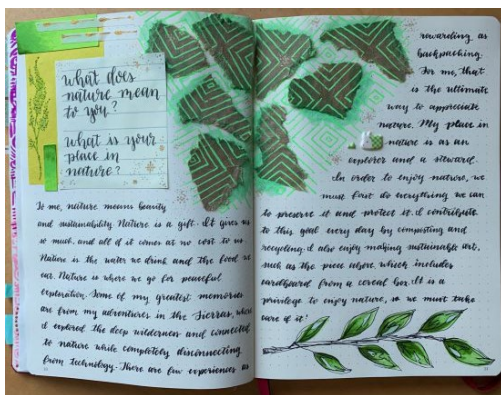 what does
nature mean
to you?
what is your
place in
nature?
To me, nature means beauty
and sustainability. Nature is a gift. It gives us
so much, and all of it comes at no cost to us.
Nature is the water we drink and the food we
eat. Nature is where we go for peaceful
exploration. Some of my greatest memories
are from my adventures in the Sierras, where
I explored the deep wilderness and connected
to nature while completely disconnecting
from technology. There are few experiences as
rewarding as
backpacking.
For me, that
is the ultimate
way to appreciate
nature. My place in
nature is as an
explorer and a steward.
In order to enjoy nature, we
must first do everything we can
to preserve it and protect it. I contribute
to this goal every day by composting and
recycling. I also enjoy making sustainable art,
such as the piece above, which includes
cardboard from a cereal box. It is a
privilege to enjoy nature, so we must take
care of it!